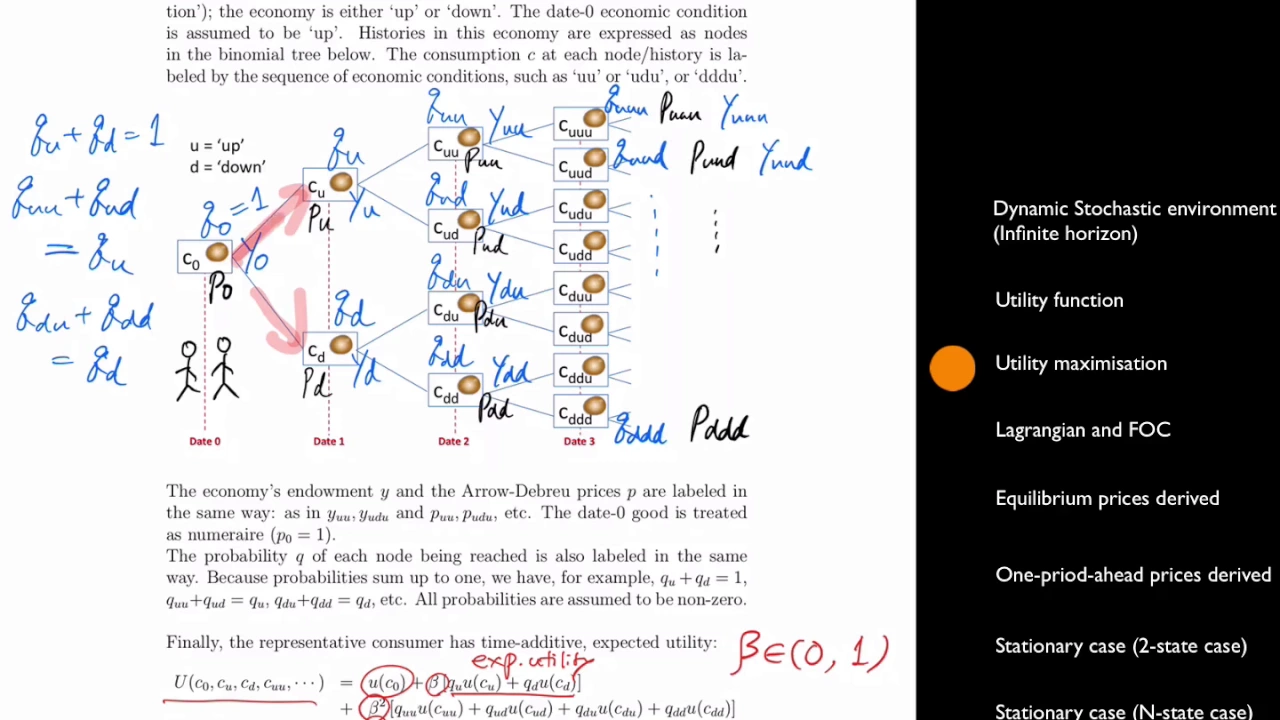 tion'); the economy is either 'up' or 'down'. The date-0 economic condition
is assumed to be 'up'. Histories in this economy are expressed as nodes
in the binomial tree below. The consumption c at each node/history is la-
beled by the sequence of economic conditions, such as 'uu' or 'udu', or 'dddu'.
q_u + q_d = 1
q_uu + q_ud
= q_u
q_du + q_dd
= q_d
u = 'up'
d = 'down'
q_0 = 1
c_0
y_0
P_0
q_u
c_u
P_u
y_u
q_d
c_d
P_d
y_d
q_uu
y_uu
c_uu
P_uu
q_ud
y_ud
c_ud
P_ud
q_du
y_du
c_du
P_du
q_dd
y_dd
c_dd
P_dd
c_uuu
q_uuu P_uuu y_uuu
c_uud
q_uud P_uud y_uud
c_udu
c_udd
c_duu
c_dud
c_ddu
c_ddd
q_ddd P_ddd
Date 0 Date 1 Date 2 Date 3
The economy's endowment y and the Arrow-Debreu prices p are labeled in
the same way: as in y_uu, y_udu and p_uu, p_udu, etc. The date-0 good is treated
as numeraire (p_0 = 1).
The probability q of each node being reached is also labeled in the same
way. Because probabilities sum up to one, we have, for example, q_u + q_d = 1,
q_uu+q_ud = q_u, q_du+q_dd = q_d, etc. All probabilities are assumed to be non-zero.
Finally, the representative consumer has time-additive, expected utility:
β∈(0, 1)
exp. utility
U(c_0, c_u, c_d, c_uu, ···) = u(c_0) + β[q_u u(c_u) + q_d u(c_d)]
+ β²[q_uu u(c_uu) + q_ud u(c_ud) + q_du u(c_du) + q_dd u(c_dd)]
Dynamic Stochastic environment
(Infinite horizon)
Utility function
Utility maximisation
Lagrangian and FOC
Equilibrium prices derived
One-priod-ahead prices derived
Stationary case (2-state case)
Stationary case (N-state case)